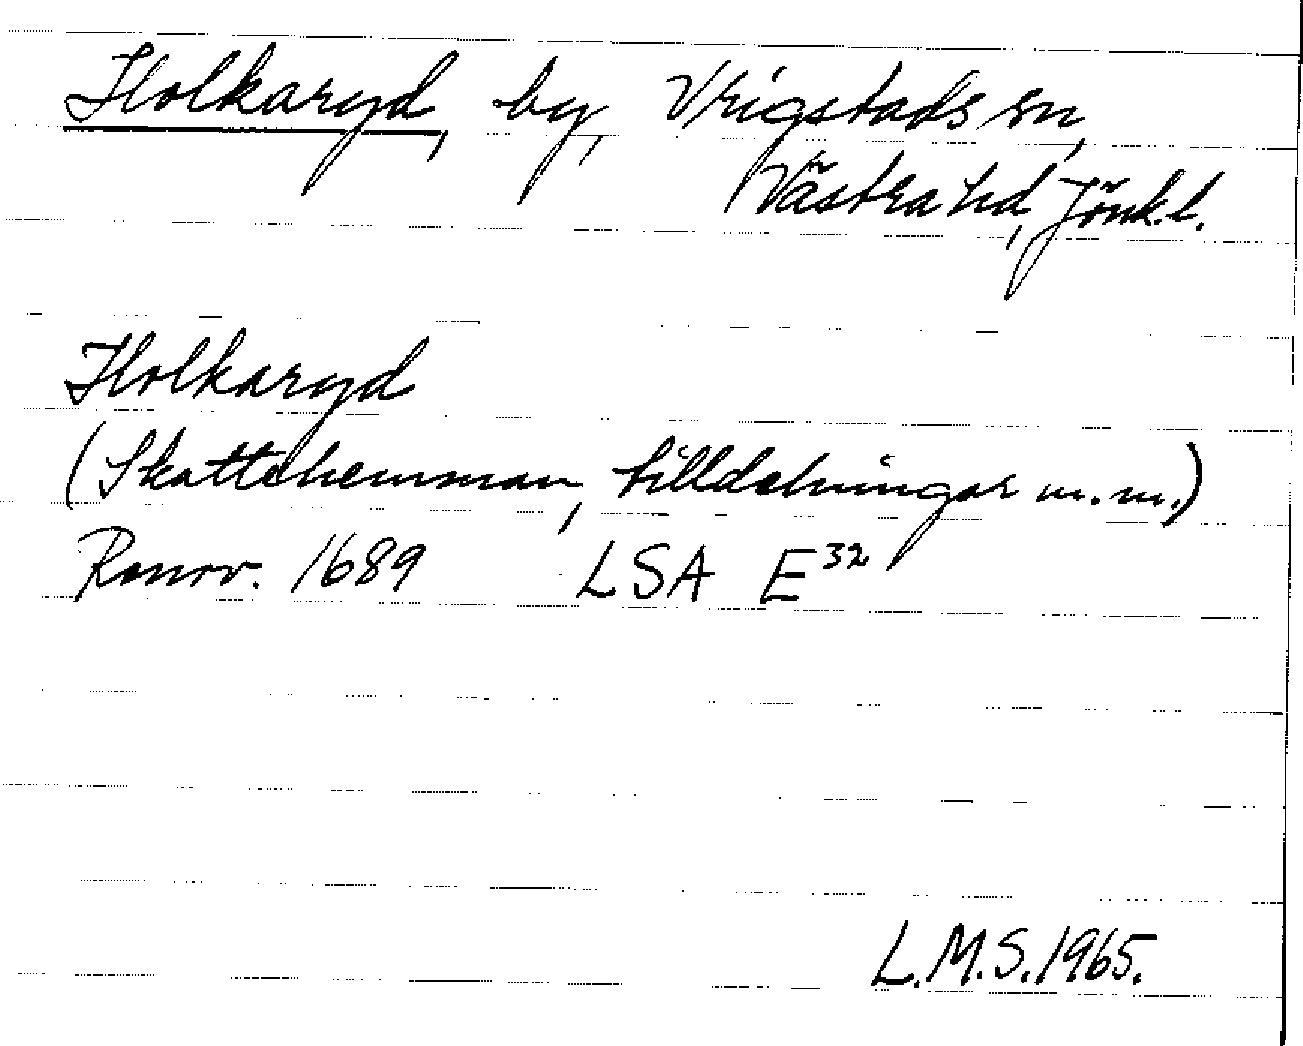 Holkaryd, by, Vrigstads sn,
Västra hd, Jönk.l.
Holkaryd
(Skattehemman, tilldelningar m.m.)
Renov. 1689 LSA E³²
L.M.S. 1965.